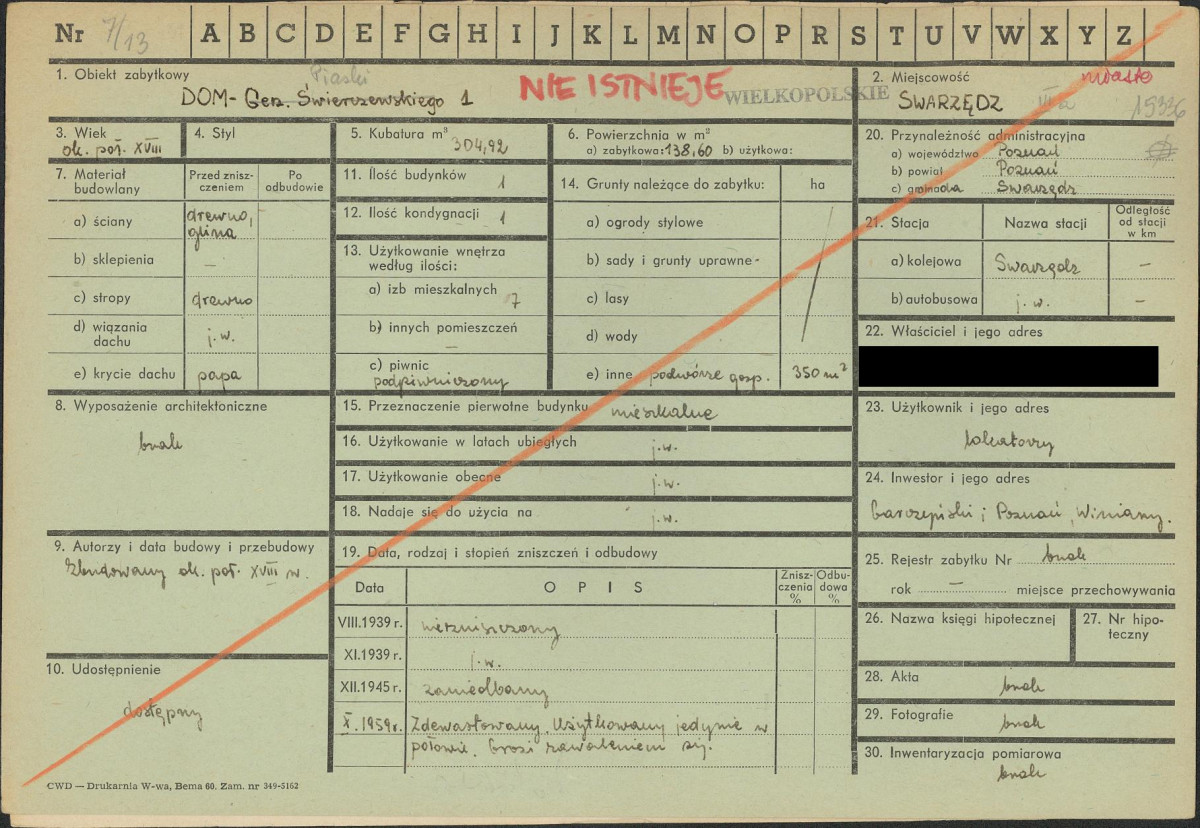 Nr 7/13 A B C D E F G H I J K L M N O P R S T U V W X Y Z
1. Obiekt zabytkowy
Piaski
DOM- Gen. Świerczewskiego 1
NIE ISTNIEJE
WIELKOPOLSKIE
2. Miejscowość
miasto
SWARZĘDZ IIIa 15336
3. Wiek
ok. poł. XVIII
4. Styl
5. Kubatura m³
304,92
6. Powierzchnia w m²
a) zabytkowa: 138,60 b) użytkowa:
7. Materiał budowlany
Przed zniszczeniem
Po odbudowie
a) ściany drewno, glina
b) sklepienia –
c) stropy drewno
d) wiązania dachu j.w.
e) krycie dachu papa
8. Wyposażenie architektoniczne
brak
9. Autorzy i data budowy i przebudowy
Zbudowany ok. poł. XVIII w.
10. Udostępnienie
dostępny
11. Ilość budynków 1
12. Ilość kondygnacji 1
13. Użytkowanie wnętrza według ilości:
a) izb mieszkalnych 7
b) innych pomieszczeń
–
c) piwnic
podpiwniczony
14. Grunty należące do zabytku: ha
a) ogrody stylowe
b) sady i grunty uprawne -
c) lasy
d) wody
e) inne podwórze gosp. 350 m²
15. Przeznaczenie pierwotne budynku mieszkalne
16. Użytkowanie w latach ubiegłych j.w.
17. Użytkowanie obecne j.w.
18. Nadaje się do użycia na j.w.
19. Data, rodzaj i stopień zniszczeń i odbudowy
Data OPIS Zniszczenia % Odbudowa %
VIII.1939 r. niezniszczony
XI.1939 r. j.w.
XII.1945 r. zaniedbany
X.1959r. Zdewastowany. Użytkowany jedynie w
połowie. Grozi zawaleniem się.
20. Przynależność administracyjna
a) województwo Poznań
b) powiat Poznań
c) gromada Swarzędz
21. Stacja Nazwa stacji Odległość od stacji w km
a) kolejowa Swarzędz –
b) autobusowa j.w. –
22. Właściciel i jego adres
23. Użytkownik i jego adres
lokatorzy
24. Inwestor i jego adres
Poznań, Winiary.
25. Rejestr zabytku Nr brak
rok – miejsce przechowywania
26. Nazwa księgi hipotecznej
27. Nr hipoteczny
28. Akta
brak
29. Fotografie
brak
30. Inwentaryzacja pomiarowa
brak
CWD — Drukarnia W-wa, Bema 60. Zam. nr 349-5162